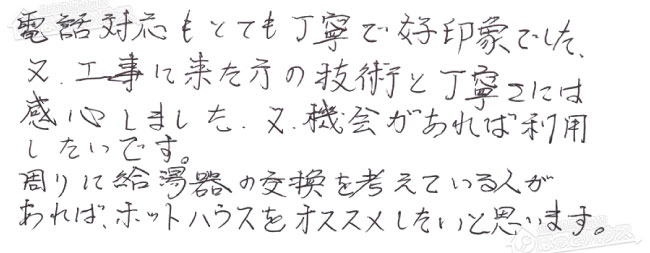 電話対応もとても丁寧で好印象でした、
又、工事に来た方の技術と丁寧さには
感心しました、又、機会があれば利用
したいです。
周りに給湯器の交換を考えている人が
あれば、ホットハウスをオススメしたいと思います。